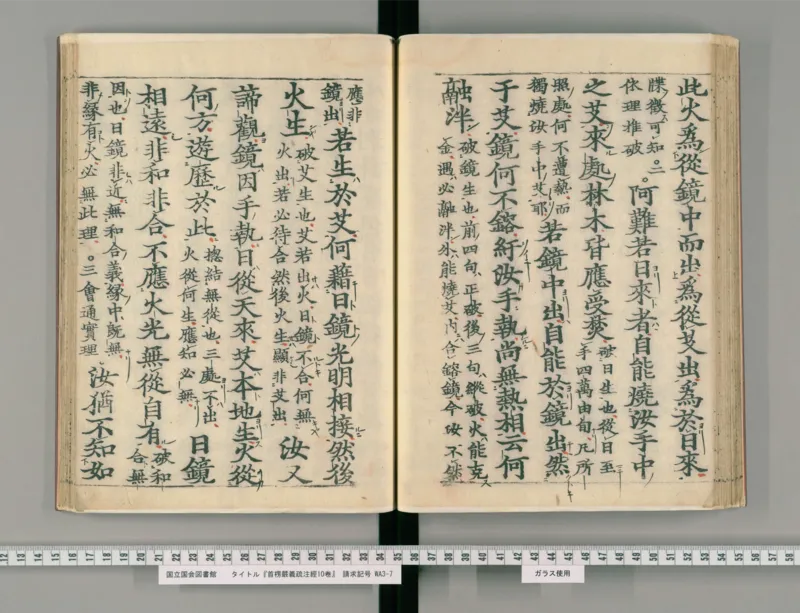 此火為從鏡中而出為從艾出為於日來
牒徵可知。二
依理推破
。阿難若日來者自能燒汝手中
之艾來處林木皆應受焚
破日生也從日至
手四萬由旬凡所
照處何不遭熱而
獨燒汝手中艾耶
若鏡中出自能於鏡出然
于艾鏡何不鎔紆汝手執尚無熱相云何
融泮
破鏡生也前四句正破後三句縱破火能克
金遇必融泮外能燒艾内合鎔鏡今汝不然
應非
鏡出
若生於艾何藉日鏡光明相接然後
火生
破艾生也艾若出火日鏡不合何無
火出若必待合然後火生顯非艾出
汝又
諦觀鏡因手執日從天來艾本地生火從
何方遊歷於此
揔結無從也三處不出
火從何生應知必無
日鏡
相遠非和非合不應火光無從自有
破和
合無
因也日鏡非近無和合義緣中既無
非緣有火必無此理。三會通實理
汝猶不知如
国立国会図書館 タイトル『首楞嚴義疏注經10巻』 請求記号 WA3-7
ガラス使用